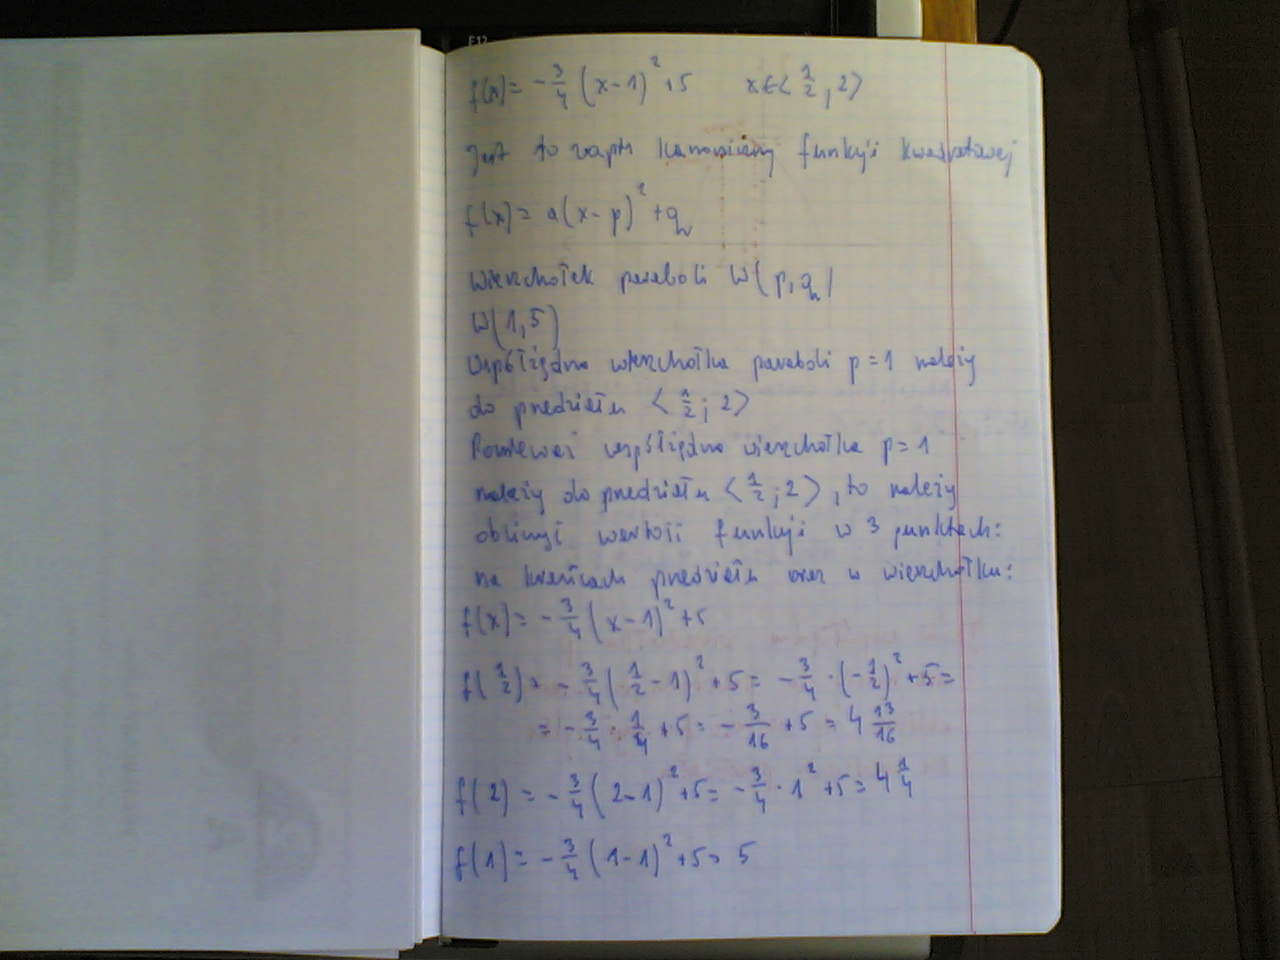 F12
f(x) = -3/4 (x-1)² +5 x∈<1/2, 2>
Jest to zapis kanoniczny funkcji kwadratowej
f(x) = a(x-p)² +q
Wierzchołek paraboli W(p,q)
W(1,5)
Współrzędna wierzchołka paraboli p=1 należy
do przedziału <1/2; 2>
Ponieważ współrzędna wierzchołka p=1
należy do przedziału <1/2; 2>, to należy
obliczyć wartości funkcji w 3 punktach:
na krańcach przedziału oraz w wierzchołku:
f(x) = -3/4 (x-1)² +5
f(1/2) = -3/4 (1/2 - 1)² +5 = -3/4 · (-1/2)² +5 =
= -3/4 · 1/4 +5 = -3/16 +5 = 4 13/16
f(2) = -3/4 (2-1)² +5 = -3/4 · 1² +5 = 4 1/4
f(1) = -3/4 (1-1)² +5 = 5